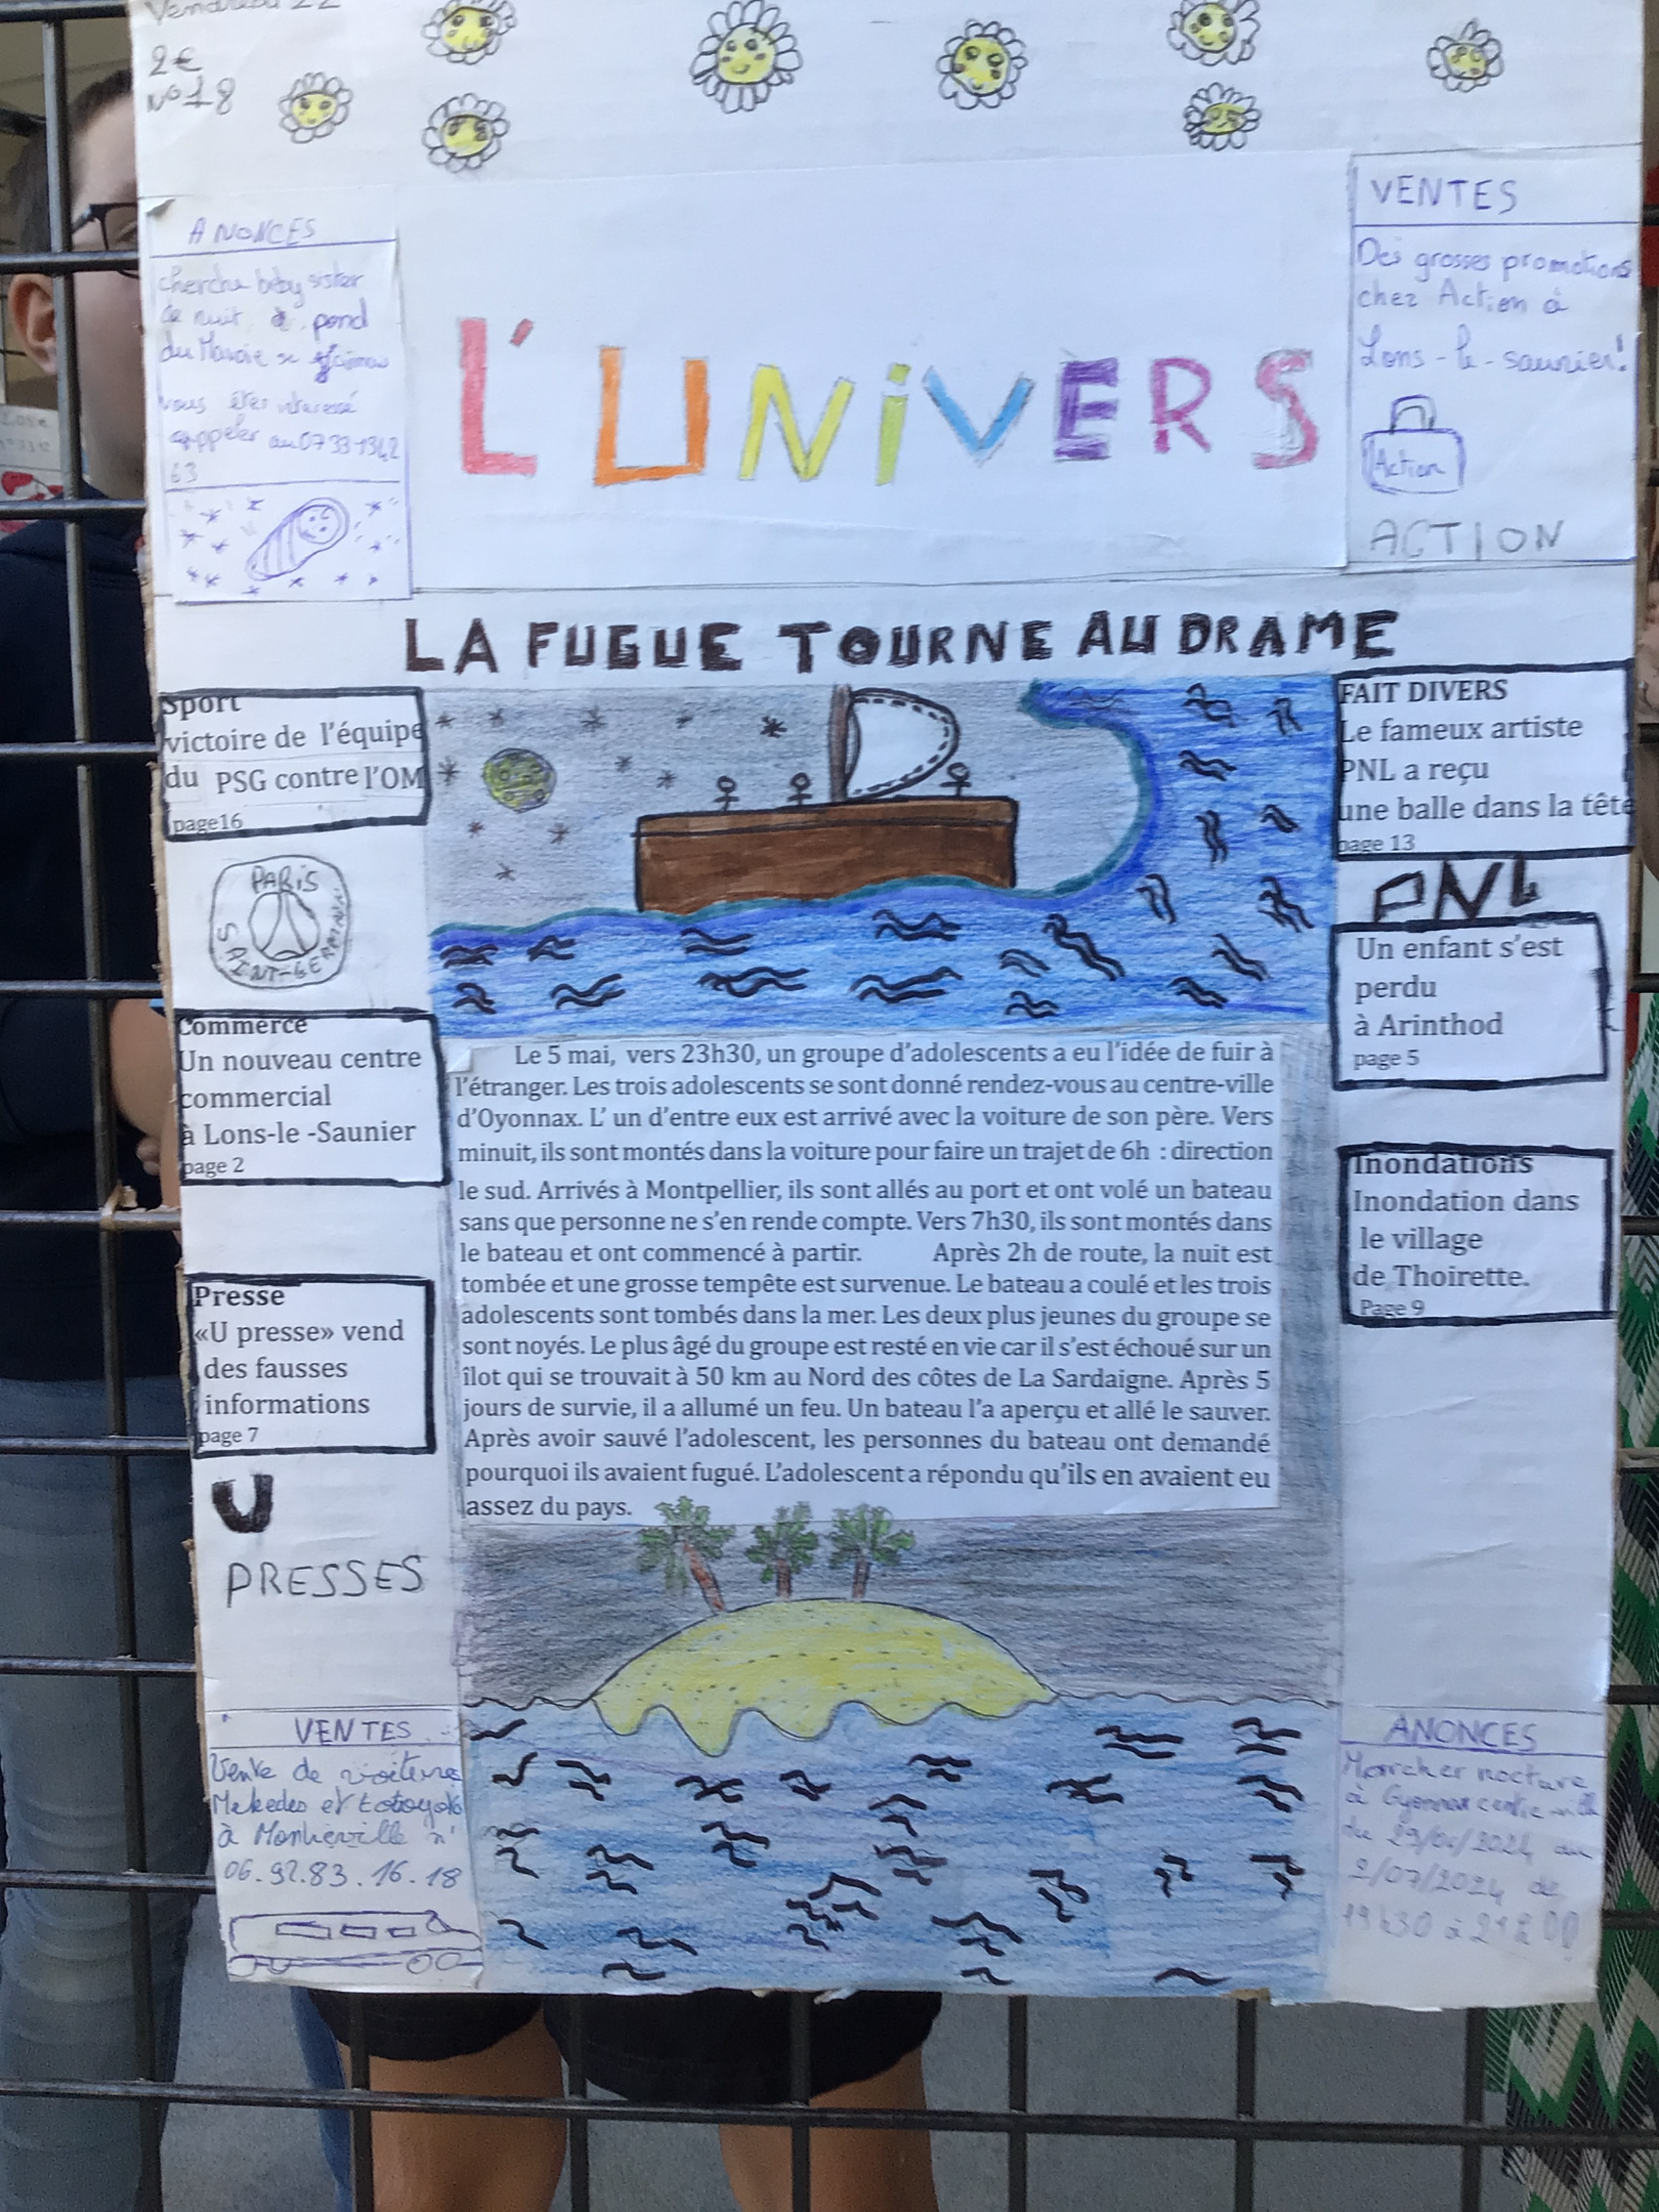 2€
N°18
ANONCES
cherche beby sister
de nuit à pond
du Navoie se
vous êtes interessé
appeler au 07 33 1342
63
L'UNiVERS
VENTES
Des grosses promotions
chez Action à
Lons-le-saunier!
Action
ACTION
LA FUGUE TOURNE AU DRAME
Sport
victoire de l'équipe
du PSG contre l'OM
page16
PARiS
SAiNT-GERMAIN
Commerce
Un nouveau centre
commercial
à Lons-le -Saunier
page 2
Presse
«U presse» vend
des fausses
informations
page 7
U
PRESSES
VENTES
Vente de voitures
Mekedes et
à n°
06.92.83.16.18
Le 5 mai, vers 23h30, un groupe d'adolescents a eu l'idée de fuir à
l'étranger. Les trois adolescents se sont donné rendez-vous au centre-ville
d'Oyonnax. L' un d'entre eux est arrivé avec la voiture de son père. Vers
minuit, ils sont montés dans la voiture pour faire un trajet de 6h : direction
le sud. Arrivés à Montpellier, ils sont allés au port et ont volé un bateau
sans que personne ne s'en rende compte. Vers 7h30, ils sont montés dans
le bateau et ont commencé à partir. Après 2h de route, la nuit est
tombée et une grosse tempête est survenue. Le bateau a coulé et les trois
adolescents sont tombés dans la mer. Les deux plus jeunes du groupe se
sont noyés. Le plus âgé du groupe est resté en vie car il s'est échoué sur un
îlot qui se trouvait à 50 km au Nord des côtes de La Sardaigne. Après 5
jours de survie, il a allumé un feu. Un bateau l'a aperçu et allé le sauver.
Après avoir sauvé l'adolescent, les personnes du bateau ont demandé
pourquoi ils avaient fugué. L'adolescent a répondu qu'ils en avaient eu
assez du pays.
FAIT DIVERS
Le fameux artiste
PNL a reçu
une balle dans la tête
page 13
PNL
Un enfant s'est
perdu
à Arinthod
page 5
Inondations
Inondation dans
le village
de Thoirette.
Page 9
ANONCES
Marcher nocture
à centre-ville
du 29/06/2024 au
2/07/2024 de
19h30 à 21h00